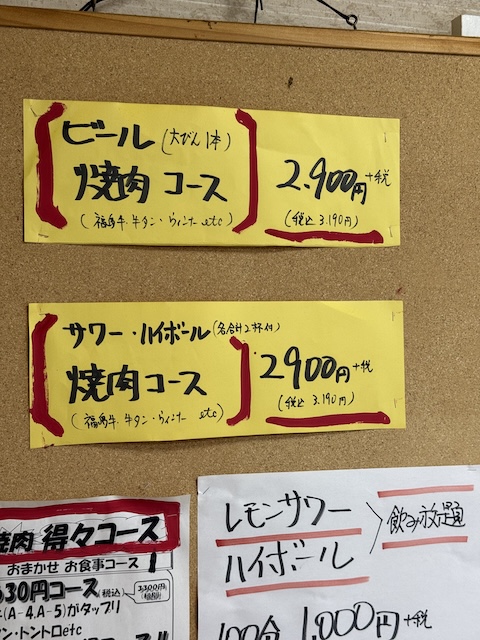 ビール(大びん1本)
焼肉 コース
(福島牛.牛タン.ウィンナー etc)
2.900円+税
(税込 3.190円)
サワー・ハイボール(各合計2杯付)
焼肉コース
(福島牛.牛タン.ウィンナー etc)
2900円+税
(税込 3.190円)
焼肉 得々コース
おまかせ お食事コース
630円コース(税込)
(A-4.A-5)がタップリ
ン・トントロetc
レモンサワー
ハイボール
飲み放題
100分 1,000円+税